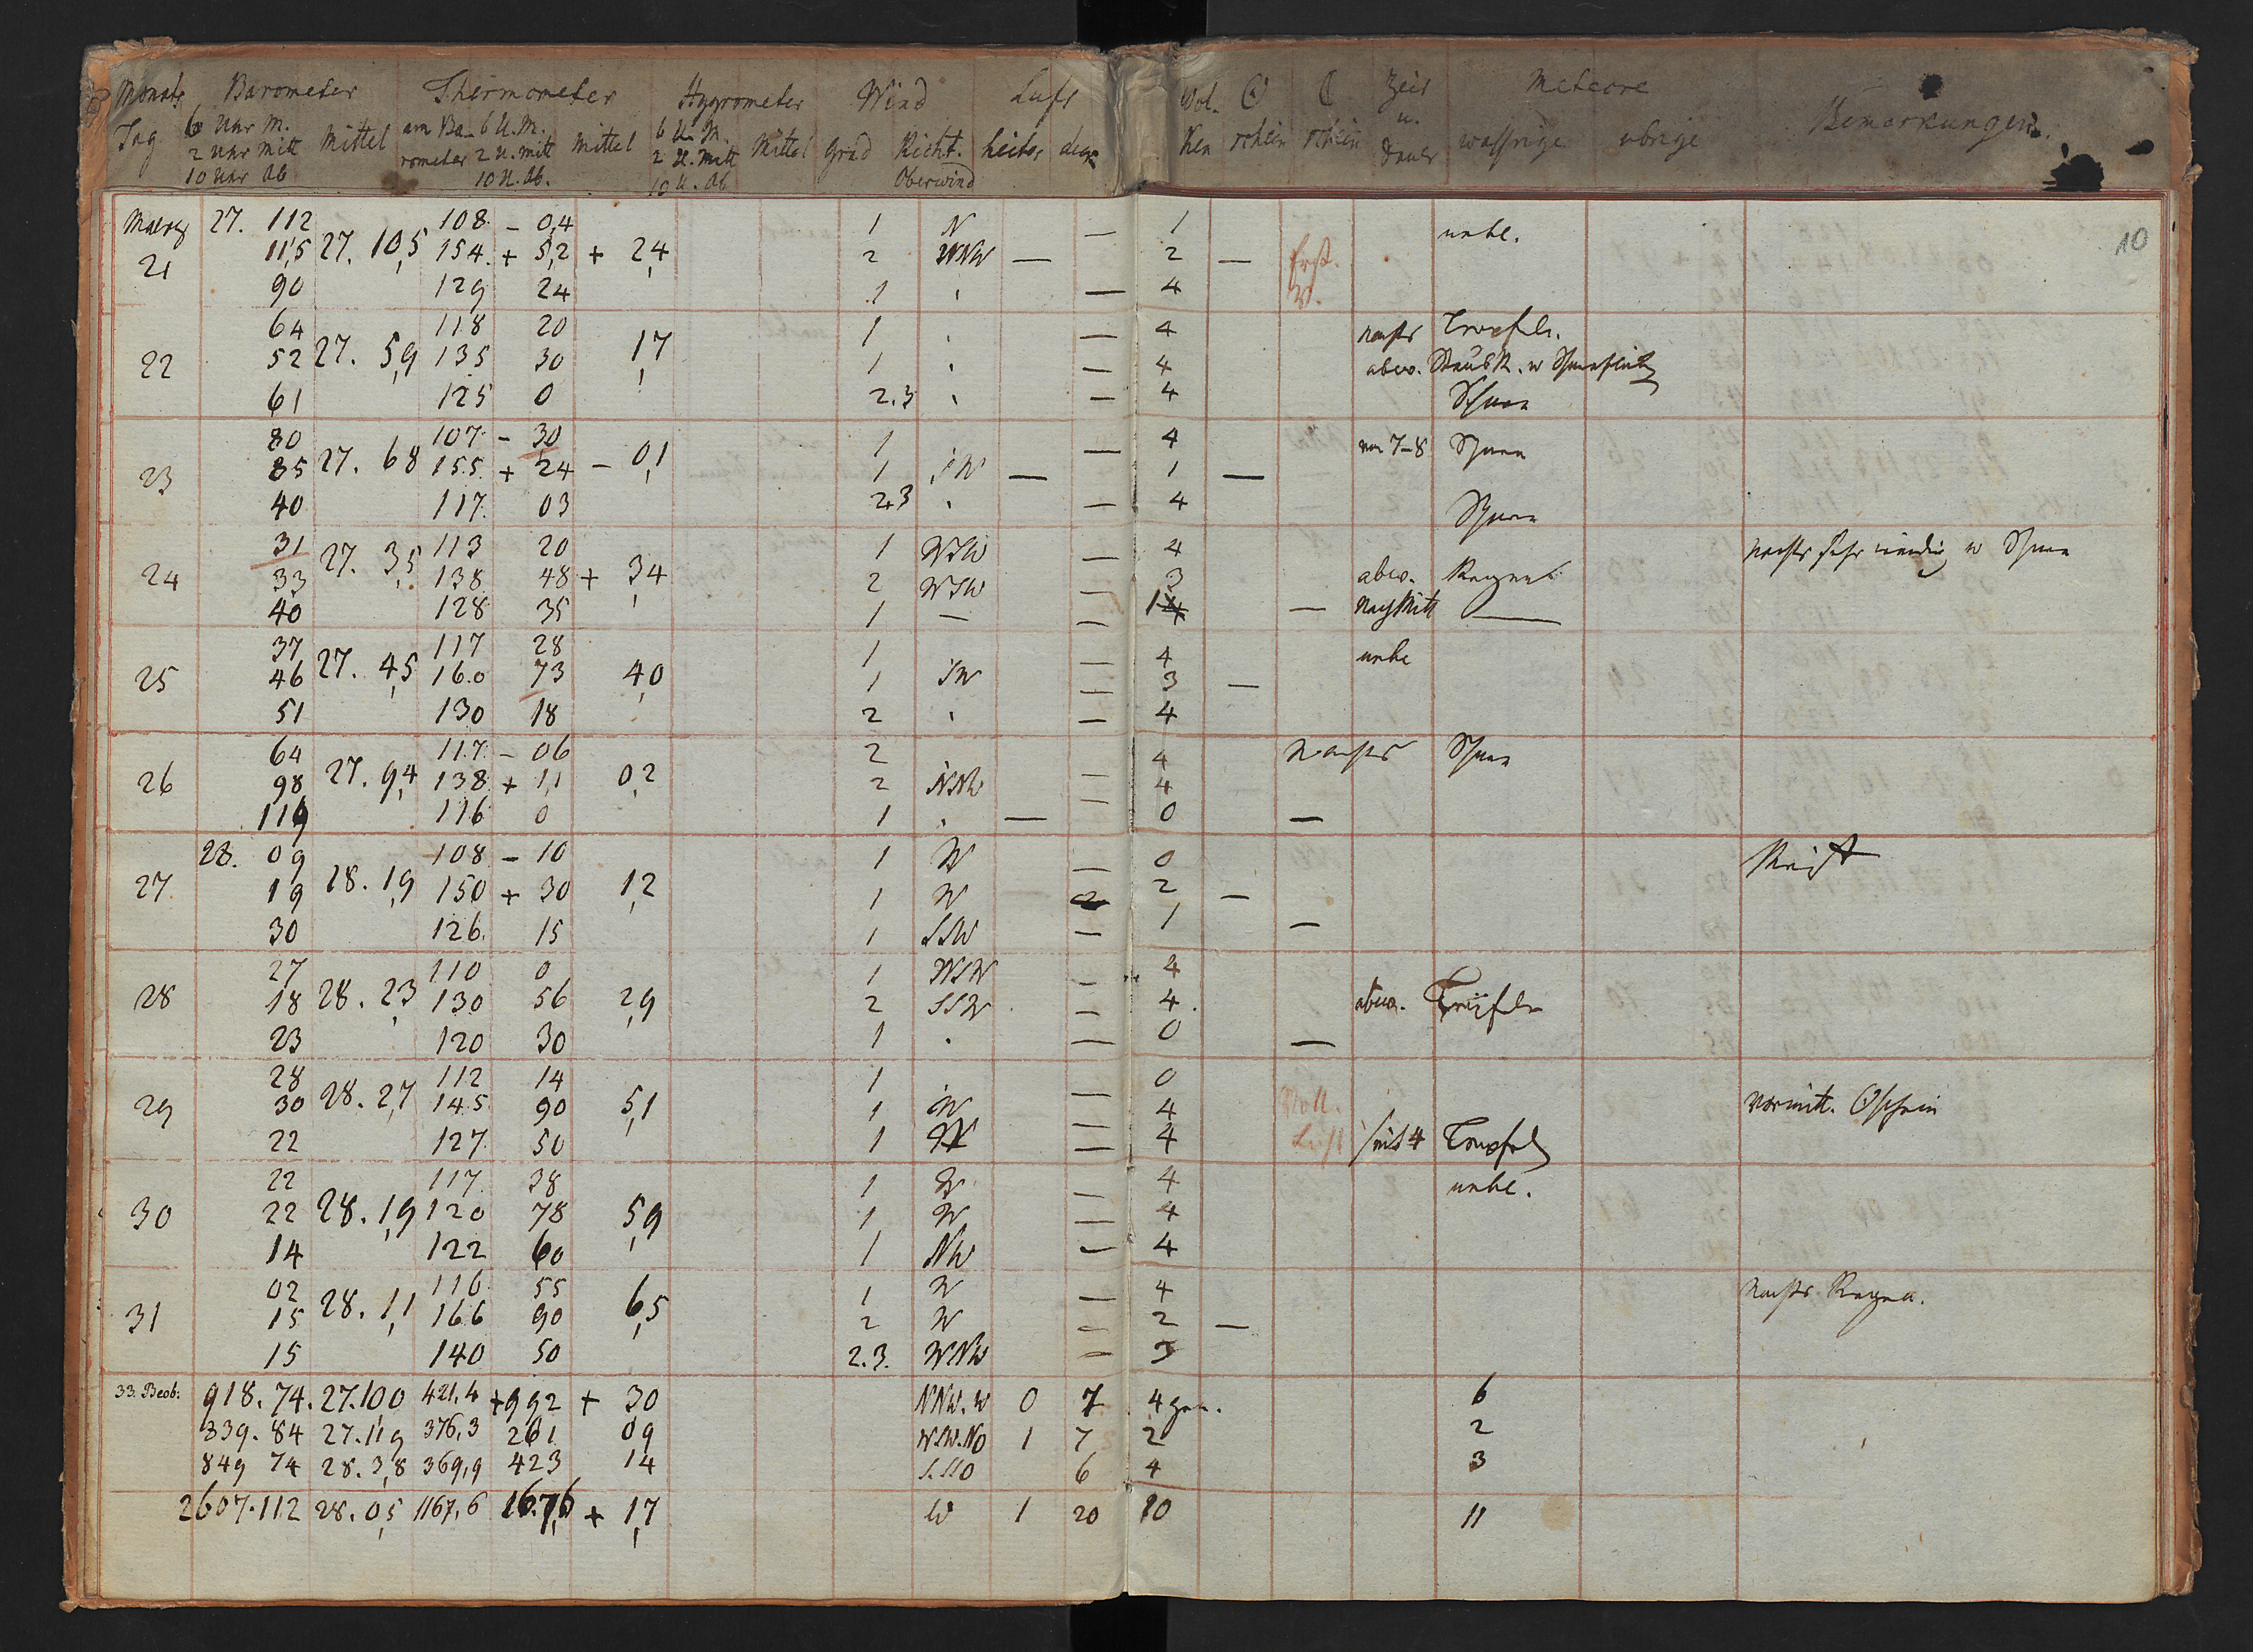 Monats Barometer Thermometer Hygrometer Wind Luft Wol- ☉ ☾ Zeit Meteore Bemerkungen.
Tag 6 Uhr M. Mittel am Ba- 6 U. M. Mittel 6 U. M. Mittel Grad Richt. heiter ken schein schein u. wassrige ubrige
2 Uhr Mitt rometer 2 U. Mitt 2 U. Mitt Dauer
10 Uhr Ab 10 U. Ab. 10 U. Ab Oberwind
10
Maerz 27. 112 108. - 0,4 1 N — 1 unbe.
21 11,5 27. 10,5 154. + 5,2 + 2,4 2 WNW — 2 — Erst.
90 129 24 1 — 4 V.
64 118 20 1 — 4 nachts Tropfeln.
22 52 27. 5,9 135 30 1,7 1 — 4 abw. Staub R. u
61 125 0 2.3 — 4 Schnee
80 107. - 30 1 — 4 von 7-8 Schnee
23 85 27. 68 155. + 24 - 0,1 1 SW — 1 —
40 117. 03 2.3 — 4 Schnee
31 27. 3,5 113 20 1 WSW — 4 nachts sehr windig u Schnee
24 33 138 48 + 3,4 2 WSW — 3 abw. Regen
40 128 35 1 — — 1 — Nachmitt —
37 117 28 1 — 4 unbe
25 46 27. 4,5 16.0 73 4,0 1 SW — 3 —
51 130 18 2 — 4
64 117. - 06 2 4 nachts Schnee
26 98 27. 9,4 138. + 1,1 0,2 2 NNW — 4
119 116 0 1 — — 0 —
28. 09 108 - 10 1 W — 0 Reif
27. 19 28. 1,9 150 + 30 1,2 1 W 2 —
30 126. 15 1 SSW — 1 —
27 110 0 1 WSW — 4
28 18 28. 2,3 130 56 2,9 2 SSW — 4. abwe. Tröpfeln
23 120 30 1 — 0 —
28 112 14 1 — 0
29 30 28. 2,7 145 90 5,1 1 W — 4 Voll. vormitt. ☉schein
22 127. 50 1 W — 4 Licht seit 4 Tropfeln
22 117. 38 1 W — 4 unbe.
30 22 28. 1,9 120 78 5,9 1 W — 4
14 122 60 1 NW — 4
02 116. 55 1 W — 4 nachts Regen.
31 15 28. 1,1 166 90 6,5 2 W — 2 —
15 140 50 2.3. WNW — 3
33. Beob. 918. 74. 27.100 421,4 +992 + 30 NNW. W 0 7 4 6
839. 84 27.11,9 376,3 261 09 WSW.NO 1 7 2 2
849 74 28. 3,8 369,9 423 14 S.SSO 6 4 3
2607.112 28. 0,5 1167,6 1676 + 1,7 W 1 20 10 11